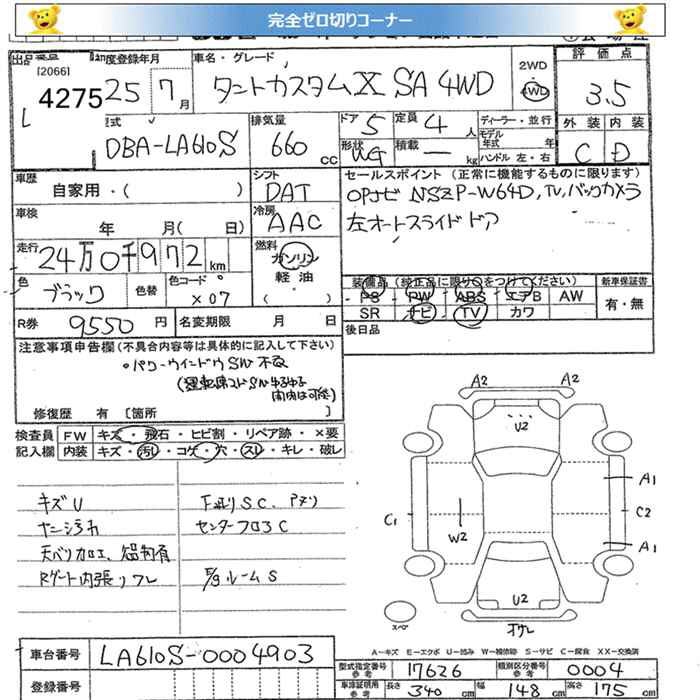 完全ゼロ切りコーナー
出品番号
[20661]
4275
初度登録年月
25年7月
車名・グレード
タントカスタム X SA 4WD
2WD
4WD
評価点
3.5
外装 内装
C D
型式
DBA-LA610S
排気量
660 cc
ドア 5
定員 4 人
形状 VG
積載 — kg
ディーラー・並行
モデル年式 年式
ハンドル 左・右
車歴
自家用・( )
シフト
DAT
冷房
AAC
セールスポイント (正常に機能するものに限ります)
OPナビ NSZP-W64D, TV, バックカメラ
左オートスライドドア
車検
年 月( 日)
走行
24万0千972 km
燃料
ガソリン
軽油
( )
色
ブラック
色替
色コード
X07
装備品 (純正品に限り○をつけてください)
PS PW ABS エアB AW
SR ナビ TV カワ
新車保証書
有・無
R券 9550 円
名変期限 月 日
後日品
注意事項申告欄 (不具合内容等は具体的に記入して下さい)
・パワーウインドウSW不良
修復歴 有 [箇所 ]
検査員 FW キズ・飛石・ヒビ割・リペア跡・×要
記入欄 内装 キズ・汚れ・コゲ・穴・スレ・キレ・破レ
キズU
下廻りSC、
センターフロアC
Rゲート内張ワレ
ルームS
A2 A2
U2
A1
C1 C2
W2
A1
U2
スペア
A-キズ E-エクボ U-凹み W-補修跡 S-サビ C-腐食 XX-交換済
車台番号 LA610S-0004903
登録番号
型式指定番号 参考 17626
類別区分番号 参考 0004
車庫証明用 参考 長さ 340 cm 幅 148 cm 高さ 175 cm